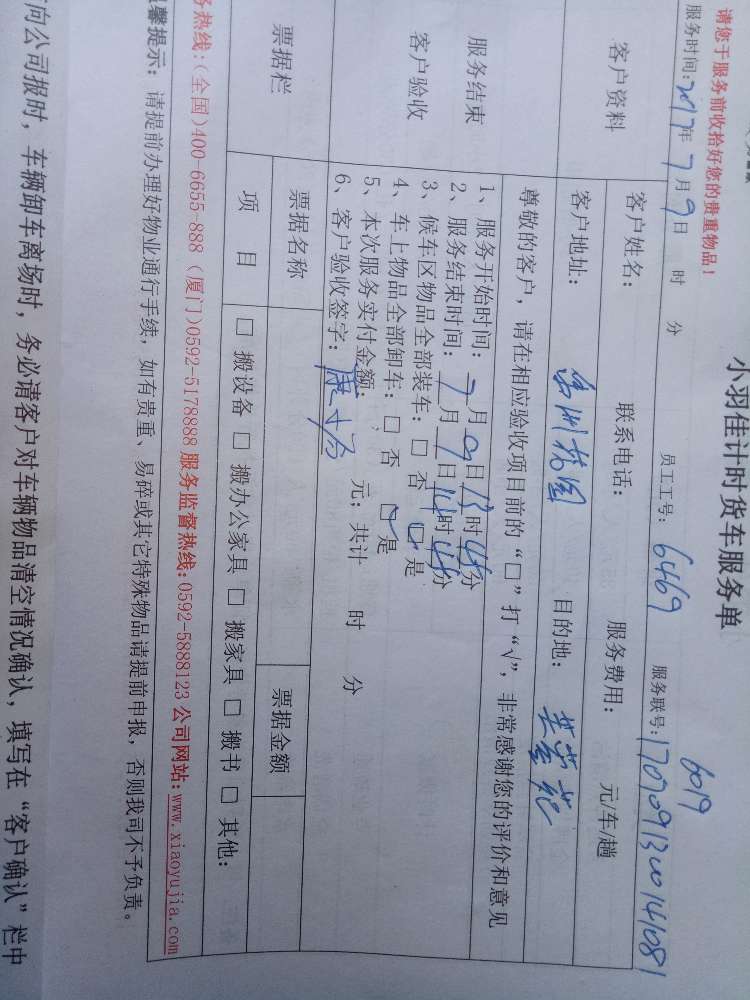 小羽佳计时货车服务单
请您于服务前收拾好您的贵重物品！
服务时间:2017年7月9日 时 分 员工工号: 6469 服务联号:
6019
客户资料 客户姓名: 联系电话: 服务费用: 元/车/趟
客户地址: 目的地:
尊敬的客户，请在相应验收项目前的“□”打“√”，非常感谢您的评价和意见
服务结束
客户验收
1、服务开始时间: 7月9日13时45分
2、服务结束时间: 7月9日14时45分
3、候车区物品全部装车: □ 否 □ 是
4、车上物品全部卸车: □ 否 □ 是
5、本次服务实付金额: 元; 共计 时 分
6、客户验收签字:
票据栏 票据名称 票据金额
项 目 □ 搬设备 □ 搬办公家具 □ 搬家具 □ 搬书 □ 其他:
务热线:(全国)400-6655-888 (厦门)0592-5178888 服务监督热线:0592-5888123 公司网站:www.xiaoyujia.com
馨提示: 请提前办理好物业通行手续，如有贵重、易碎或其它特殊物品请提前申报，否则我司不予负责。
向公司报时，车辆卸车离场时，务必请客户对车辆物品清空情况确认，填写在“客户确认”栏中